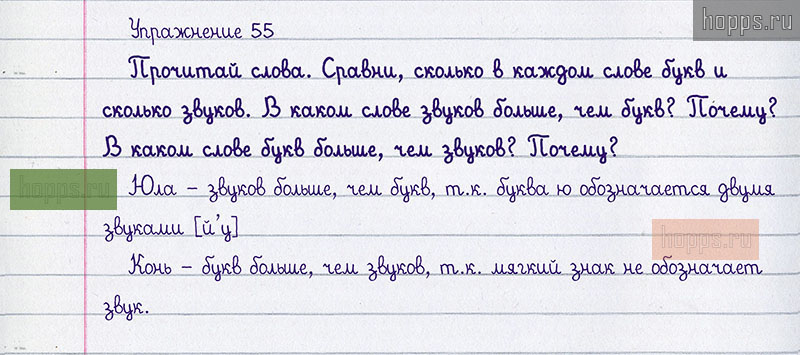 hopps.ru
Упражнение 55
Прочитай слова. Сравни, сколько в каждом слове букв и
сколько звуков. В каком слове звуков больше, чем букв? Почему?
В каком слове букв больше, чем звуков? Почему?
hopps.ru
Юла – звуков больше, чем букв, т.к. буква ю обозначается двумя
звуками [й'у]
hopps.ru
Конь – букв больше, чем звуков, т.к. мягкий знак не обозначает
звук.